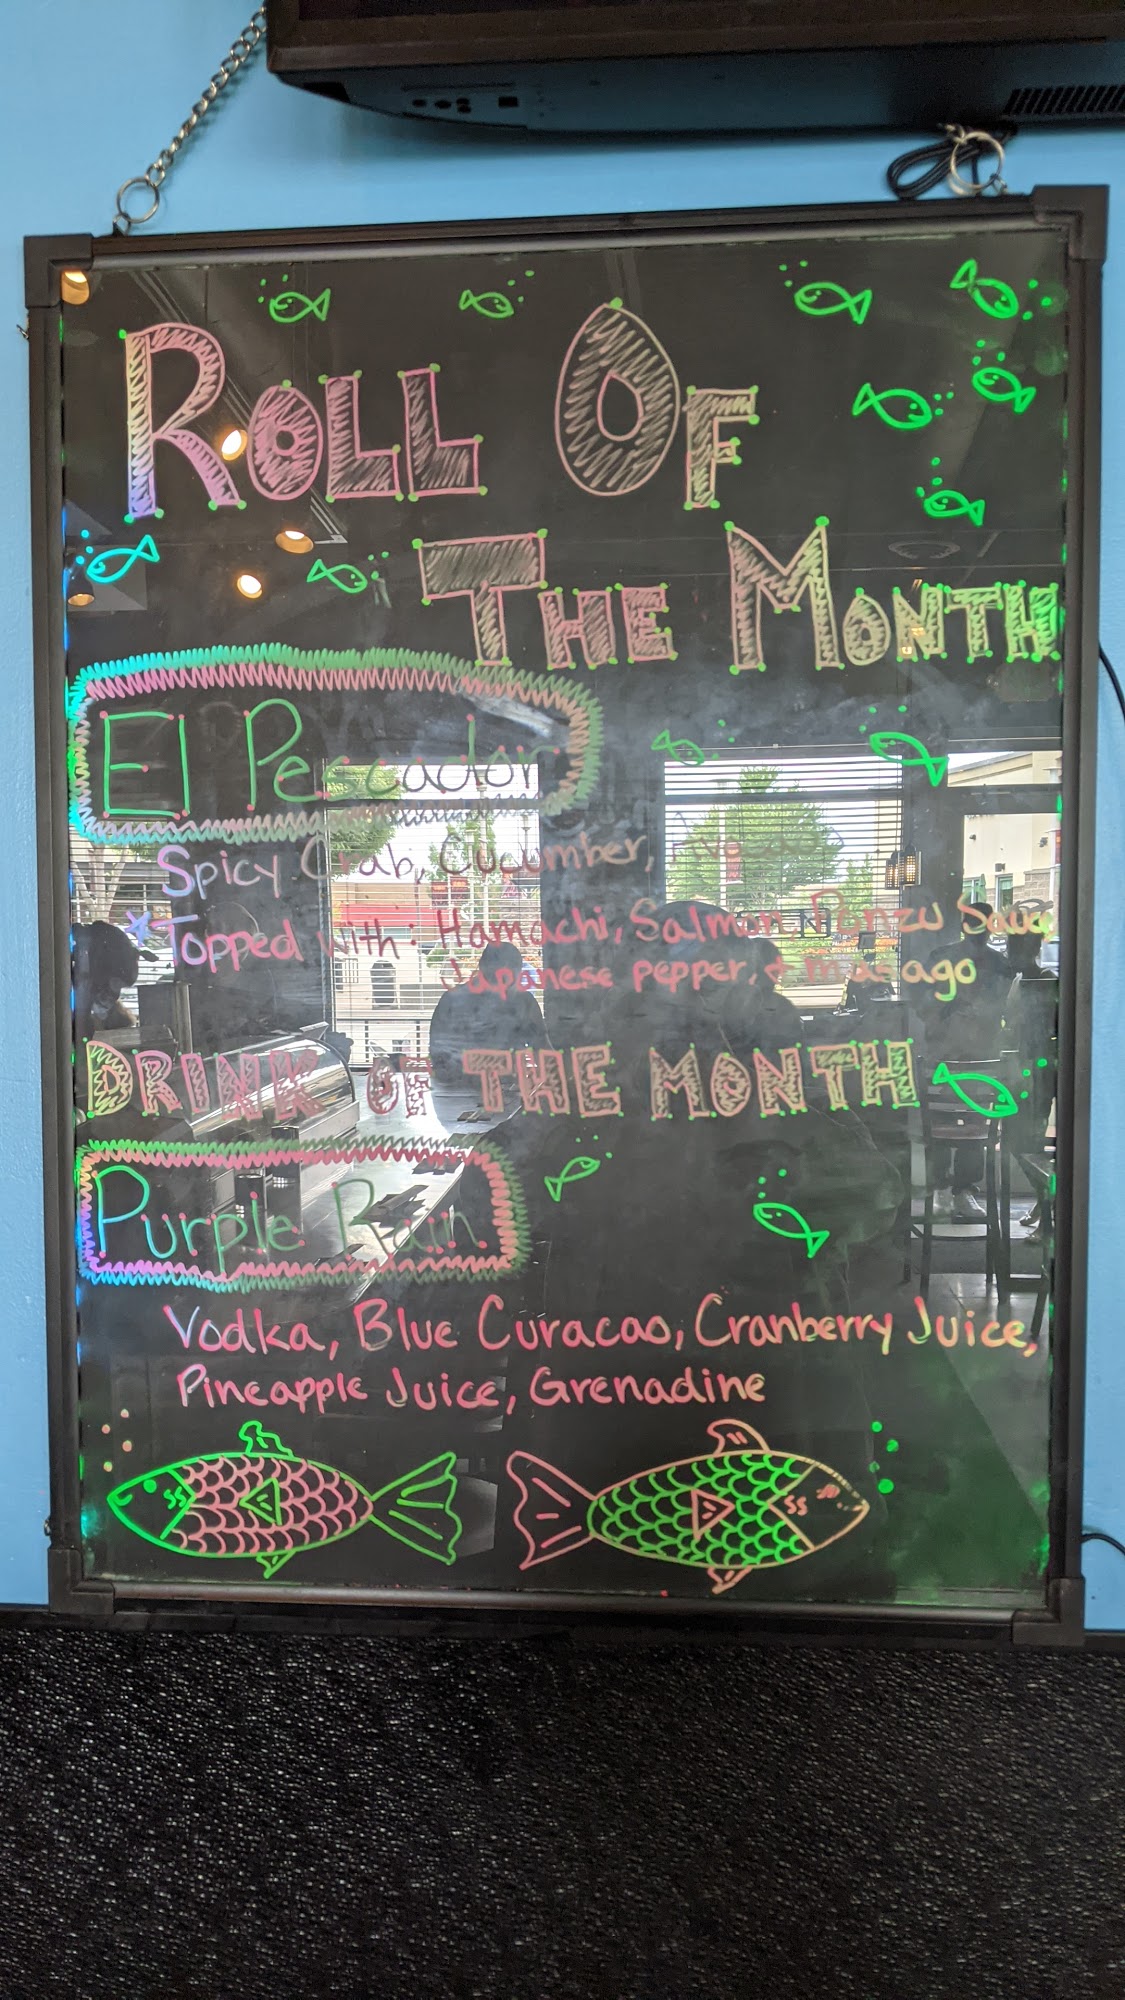 ROLL OF
THE MONTH
El Pescador
Spicy Crab, Cucumber, Avocado
*Topped with: Hamachi, Salmon, Ponzu Sauce
Japanese pepper, & masago
DRINK OF THE MONTH
Purple Rain
Vodka, Blue Curacao, Cranberry Juice,
Pineapple Juice, Grenadine